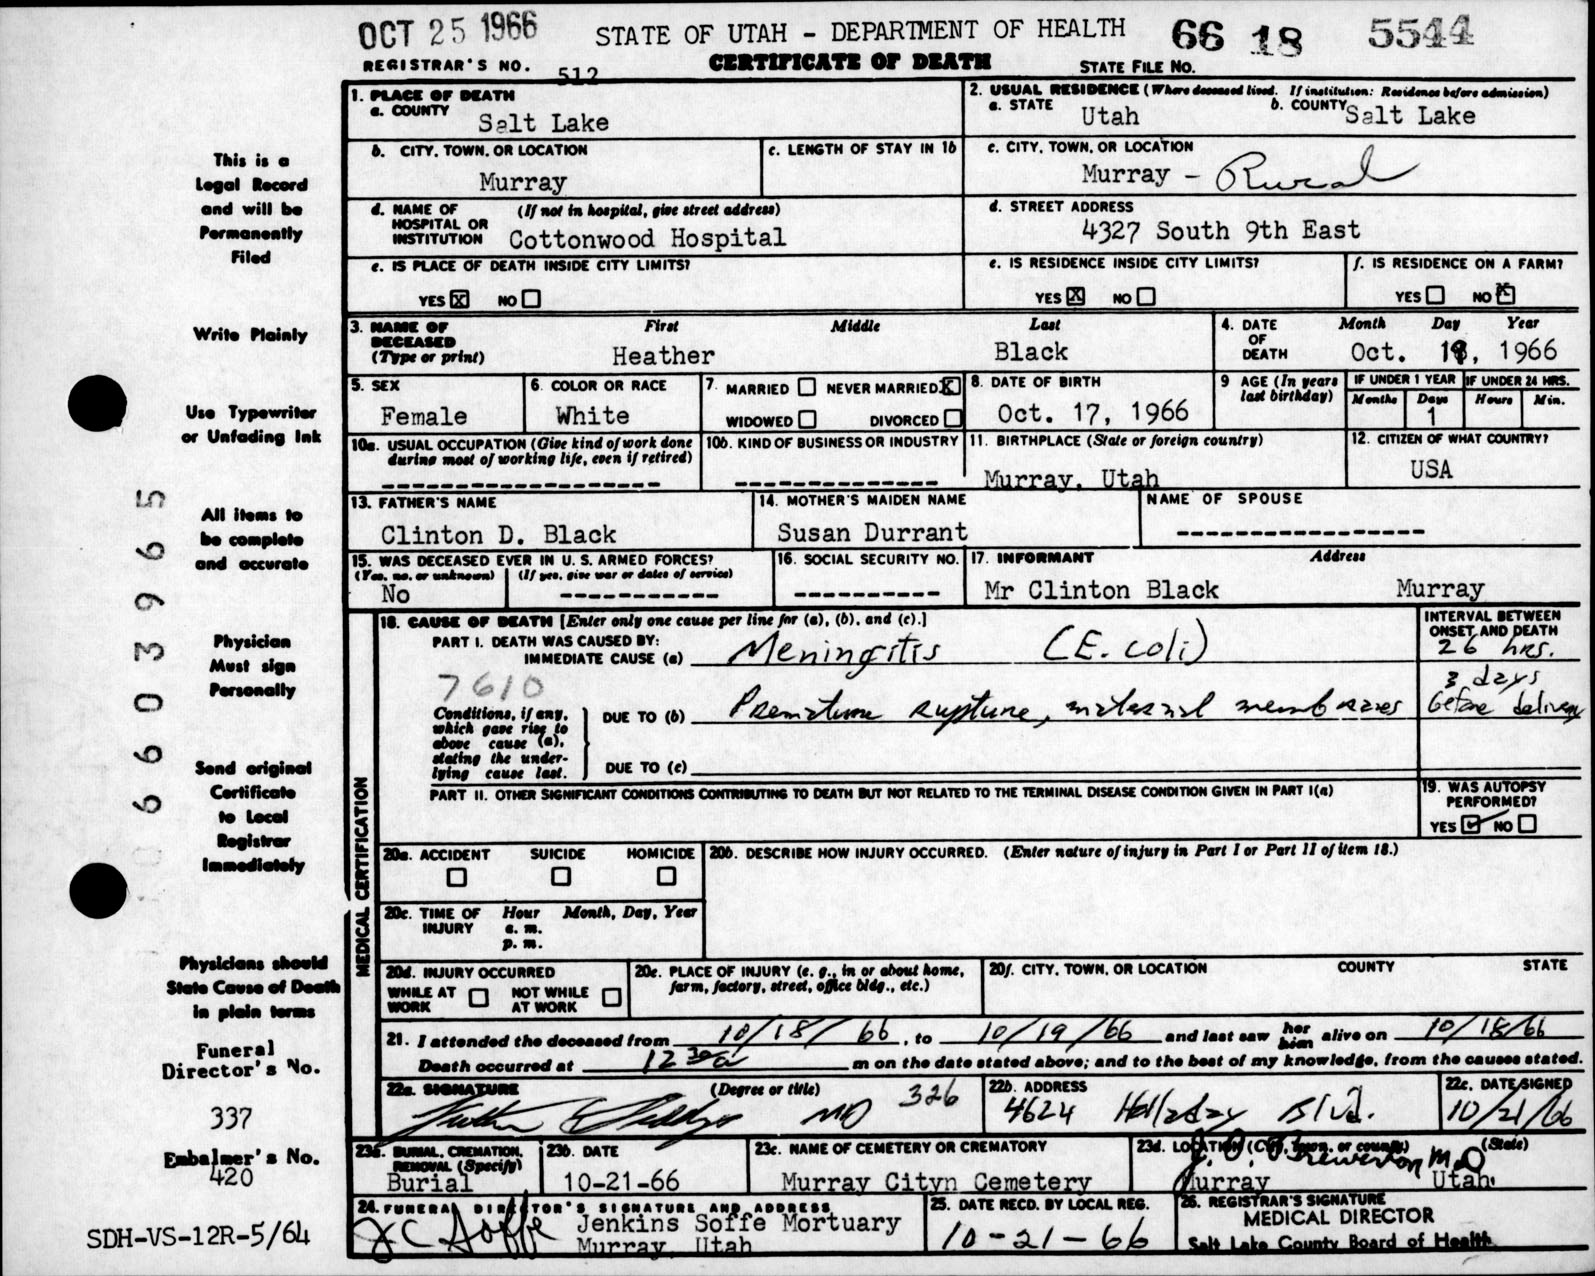 OCT 25 1966
STATE OF UTAH - DEPARTMENT OF HEALTH 66 18 5544
REGISTRAR'S NO. 512 CERTIFICATE OF DEATH STATE FILE NO.
1. PLACE OF DEATH
a. COUNTY
Salt Lake
2. USUAL RESIDENCE (Where deceased lived. If institution: Residence before admission)
a. STATE Utah b. COUNTY Salt Lake
b. CITY, TOWN, OR LOCATION
Murray
c. LENGTH OF STAY IN 1b
c. CITY, TOWN, OR LOCATION
Murray - Rural
d. NAME OF HOSPITAL OR INSTITUTION (If not in hospital, give street address)
Cottonwood Hospital
d. STREET ADDRESS
4327 South 9th East
e. IS PLACE OF DEATH INSIDE CITY LIMITS?
YES X NO
e. IS RESIDENCE INSIDE CITY LIMITS?
YES X NO
f. IS RESIDENCE ON A FARM?
YES NO X
3. NAME OF DECEASED (Type or print)
First Middle Last
Heather Black
4. DATE OF DEATH
Month Day Year
Oct. 1966
5. SEX
Female
6. COLOR OR RACE
White
7. MARRIED NEVER MARRIED X
WIDOWED DIVORCED
8. DATE OF BIRTH
Oct. 17, 1966
9 AGE (In years last birthday)
IF UNDER 1 YEAR IF UNDER 24 HRS.
Months Days Hours Min.
1
10a. USUAL OCCUPATION (Give kind of work done during most of working life, even if retired)
10b. KIND OF BUSINESS OR INDUSTRY
11. BIRTHPLACE (State or foreign country)
Murray, Utah
12. CITIZEN OF WHAT COUNTRY?
USA
13. FATHER'S NAME
Clinton D. Black
14. MOTHER'S MAIDEN NAME
Susan Durrant
NAME OF SPOUSE
15. WAS DECEASED EVER IN U. S. ARMED FORCES?
(Yes, no, or unknown) (If yes, give war or dates of service)
No
16. SOCIAL SECURITY NO.
17. INFORMANT Address
Mr Clinton Black Murray
18. CAUSE OF DEATH [Enter only one cause per line for (a), (b), and (c).]
PART I. DEATH WAS CAUSED BY:
IMMEDIATE CAUSE (a) Meningitis (E. coli)
INTERVAL BETWEEN ONSET AND DEATH
26 hrs.
7610
Conditions, if any, which gave rise to above cause (a), stating the underlying cause last.
DUE TO (b) Premature rupture, maternal membranes
3 days before delivery
DUE TO (c)
PART II. OTHER SIGNIFICANT CONDITIONS CONTRIBUTING TO DEATH BUT NOT RELATED TO THE TERMINAL DISEASE CONDITION GIVEN IN PART I(a)
19. WAS AUTOPSY PERFORMED?
YES ✓ NO
MEDICAL CERTIFICATION
20a. ACCIDENT SUICIDE HOMICIDE
20b. DESCRIBE HOW INJURY OCCURRED. (Enter nature of injury in Part I or Part II of item 18.)
20c. TIME OF INJURY Hour Month, Day, Year
a. m.
p. m.
20d. INJURY OCCURRED
WHILE AT WORK NOT WHILE AT WORK
20e. PLACE OF INJURY (e. g., in or about home, farm, factory, street, office bldg., etc.)
20f. CITY, TOWN, OR LOCATION COUNTY STATE
21. I attended the deceased from 10/18/66, to 10/19/66 and last saw her him alive on 10/18/66
Death occurred at 12 30 a m on the date stated above; and to the best of my knowledge, from the causes stated.
22a. SIGNATURE (Degree or title)
MD 326
22b. ADDRESS
4624 Holladay Blvd.
22c. DATE SIGNED
10/21/66
23a. BURIAL, CREMATION, REMOVAL (Specify)
Burial
23b. DATE
10-21-66
23c. NAME OF CEMETERY OR CREMATORY
Murray Cityn Cemetery
23d. LOCATION (City, town, or county) (State)
Murray Utah
24. FUNERAL DIRECTOR'S SIGNATURE AND ADDRESS
J C Soffe Jenkins Soffe Mortuary
Murray Utah
25. DATE RECD. BY LOCAL REG.
10-21-66
26. REGISTRAR'S SIGNATURE
MEDICAL DIRECTOR
Salt Lake County Board of Health
This is a
Legal Record
and will be
Permanently
Filed
Write Plainly
Use Typewriter
or Unfading Ink
All items to
be complete
and accurate
Physician
Must sign
Personally
Send original
Certificate
to Local
Registrar
Immediately
Physicians should
State Cause of Death
in plain terms
Funeral
Director's No.
337
Embalmer's No.
420
SDH-VS-12R-5/64